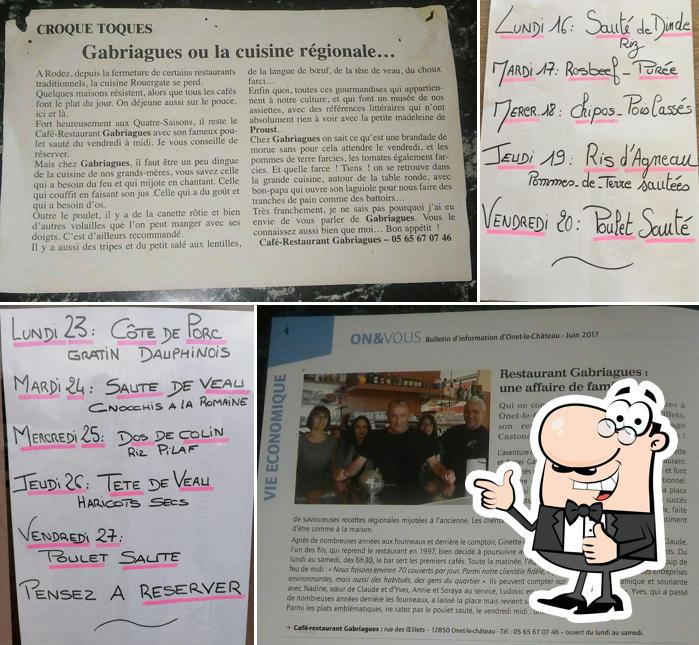 CROQUE TOQUES
Gabriagues ou la cuisine régionale...
A Rodez, depuis la fermeture de certains restaurants
traditionnels, la cuisine Rouergate se perd.
Quelques maisons résistent, alors que tous les cafés
font le plat du jour. On déjeune aussi sur le pouce,
ici et là.
Fort heureusement aux Quatre-Saisons, il reste le
Café-Restaurant Gabriagues avec son fameux pou-
let sauté du vendredi à midi. Je vous conseille de
réserver.
Mais chez Gabriagues, il faut être un peu dingue
de la cuisine de nos grands-mères, vous savez celle
qui a besoin du feu et qui mijote en chantant. Celle
qui confit en faisant son jus .Celle qui a du goût et
qui a besoin d'os.
Outre le poulet, il y a de la canette rôtie et bien
d'autres volailles que l'on peut manger avec ses
doigts. C'est d'ailleurs recommandé.
Il y a aussi des tripes et du petit salé aux lentilles,
de la langue de bœuf, de la tête de veau, du choux
farci...
Enfin quoi, toutes ces gourmandises qui appartien-
nent à notre culture, et qui font un musée de nos
assiettes, avec des références littéraires qui n'ont
absolument rien à voir avec la petite madeleine de
Proust.
Chez Gabriagues on sait ce qu'est une brandade de
morue sans pour cela attendre le vendredi, et les
pommes de terre farcies, les tomates également far-
cies. Et quelle farce ! Tiens ! on se retrouve dans
la grande cuisine, autour de la table ronde, avec
bon-papa qui ouvre son laguiole pour nous faire des
tranches de pain comme des battoirs...
Très franchement, je ne sais pas pourquoi j'ai eu
envie de vous parler de Gabriagues. Vous le
connaissez aussi bien que moi... Bon appétit !
Café-Restaurant Gabriagues – 05 65 67 07 46
LUNDI 16 : Sauté de Dinde
Riz
MARDI 17 : Rosbeef - Purée
MERCR. 18 : Chipos - Pois Cassés
JEUDI 19 : Ris d'Agneau
Pommes-de-Terre sautées
VENDREDI 20 : Poulet Sauté
LUNDI 23 : CÔTE DE PORC
GRATIN DAUPHINOIS
MARDI 24 : SAUTE DE VEAU
GNOCCHIS A LA ROMAINE
MERCREDI 25 : DOS DE COLIN
RIZ PILAF
JEUDI 26 : TETE DE VEAU
HARICOTS SECS
VENDREDI 27 :
POULET SAUTE
PENSEZ A RESERVER
4
ON&VOUS Bulletin d'information d'Onet-le-Château - Juin 2017
VIE ECONOMIQUE
Restaurant Gabriagues :
une affaire de
Qui ne
Onet-le-
son
Caston
L'aventure
de savoureuses recettes régionales mijotées à l'ancienne. Les clients
d'être comme à la maison.
Après de nombreuses années aux fourneaux et derrière le comptoir, Ginette Claude,
l'un des fils, qui reprend le restaurant en 1997, bien décidé à poursuivre Du
lundi au samedi, dès 6h30, le bar sert les premiers cafés. Toute la matinée, coup de
feu de midi : « Nous faisons environ 70 couverts par jour. Parmi notre clientèle entreprises
environnantes, mais aussi des habitués, des gens du quartier ». Ils peuvent compter sur dynamique et souriante
avec Nadine, sœur de Claude et d'Yves, Annie et Soraya au service, Ludovic Yves, qui a passé
de nombreuses années derrière les fourneaux, a laissé la place mais revient
Parmi les plats emblématiques, ne ratez pas le poulet sauté, le vendredi midi :
→ Café-restaurant Gabriagues : rue des Œillets - 12850 Onet-le-château - Tél : 05 65 67 07 46 - ouvert du lundi au samedi.